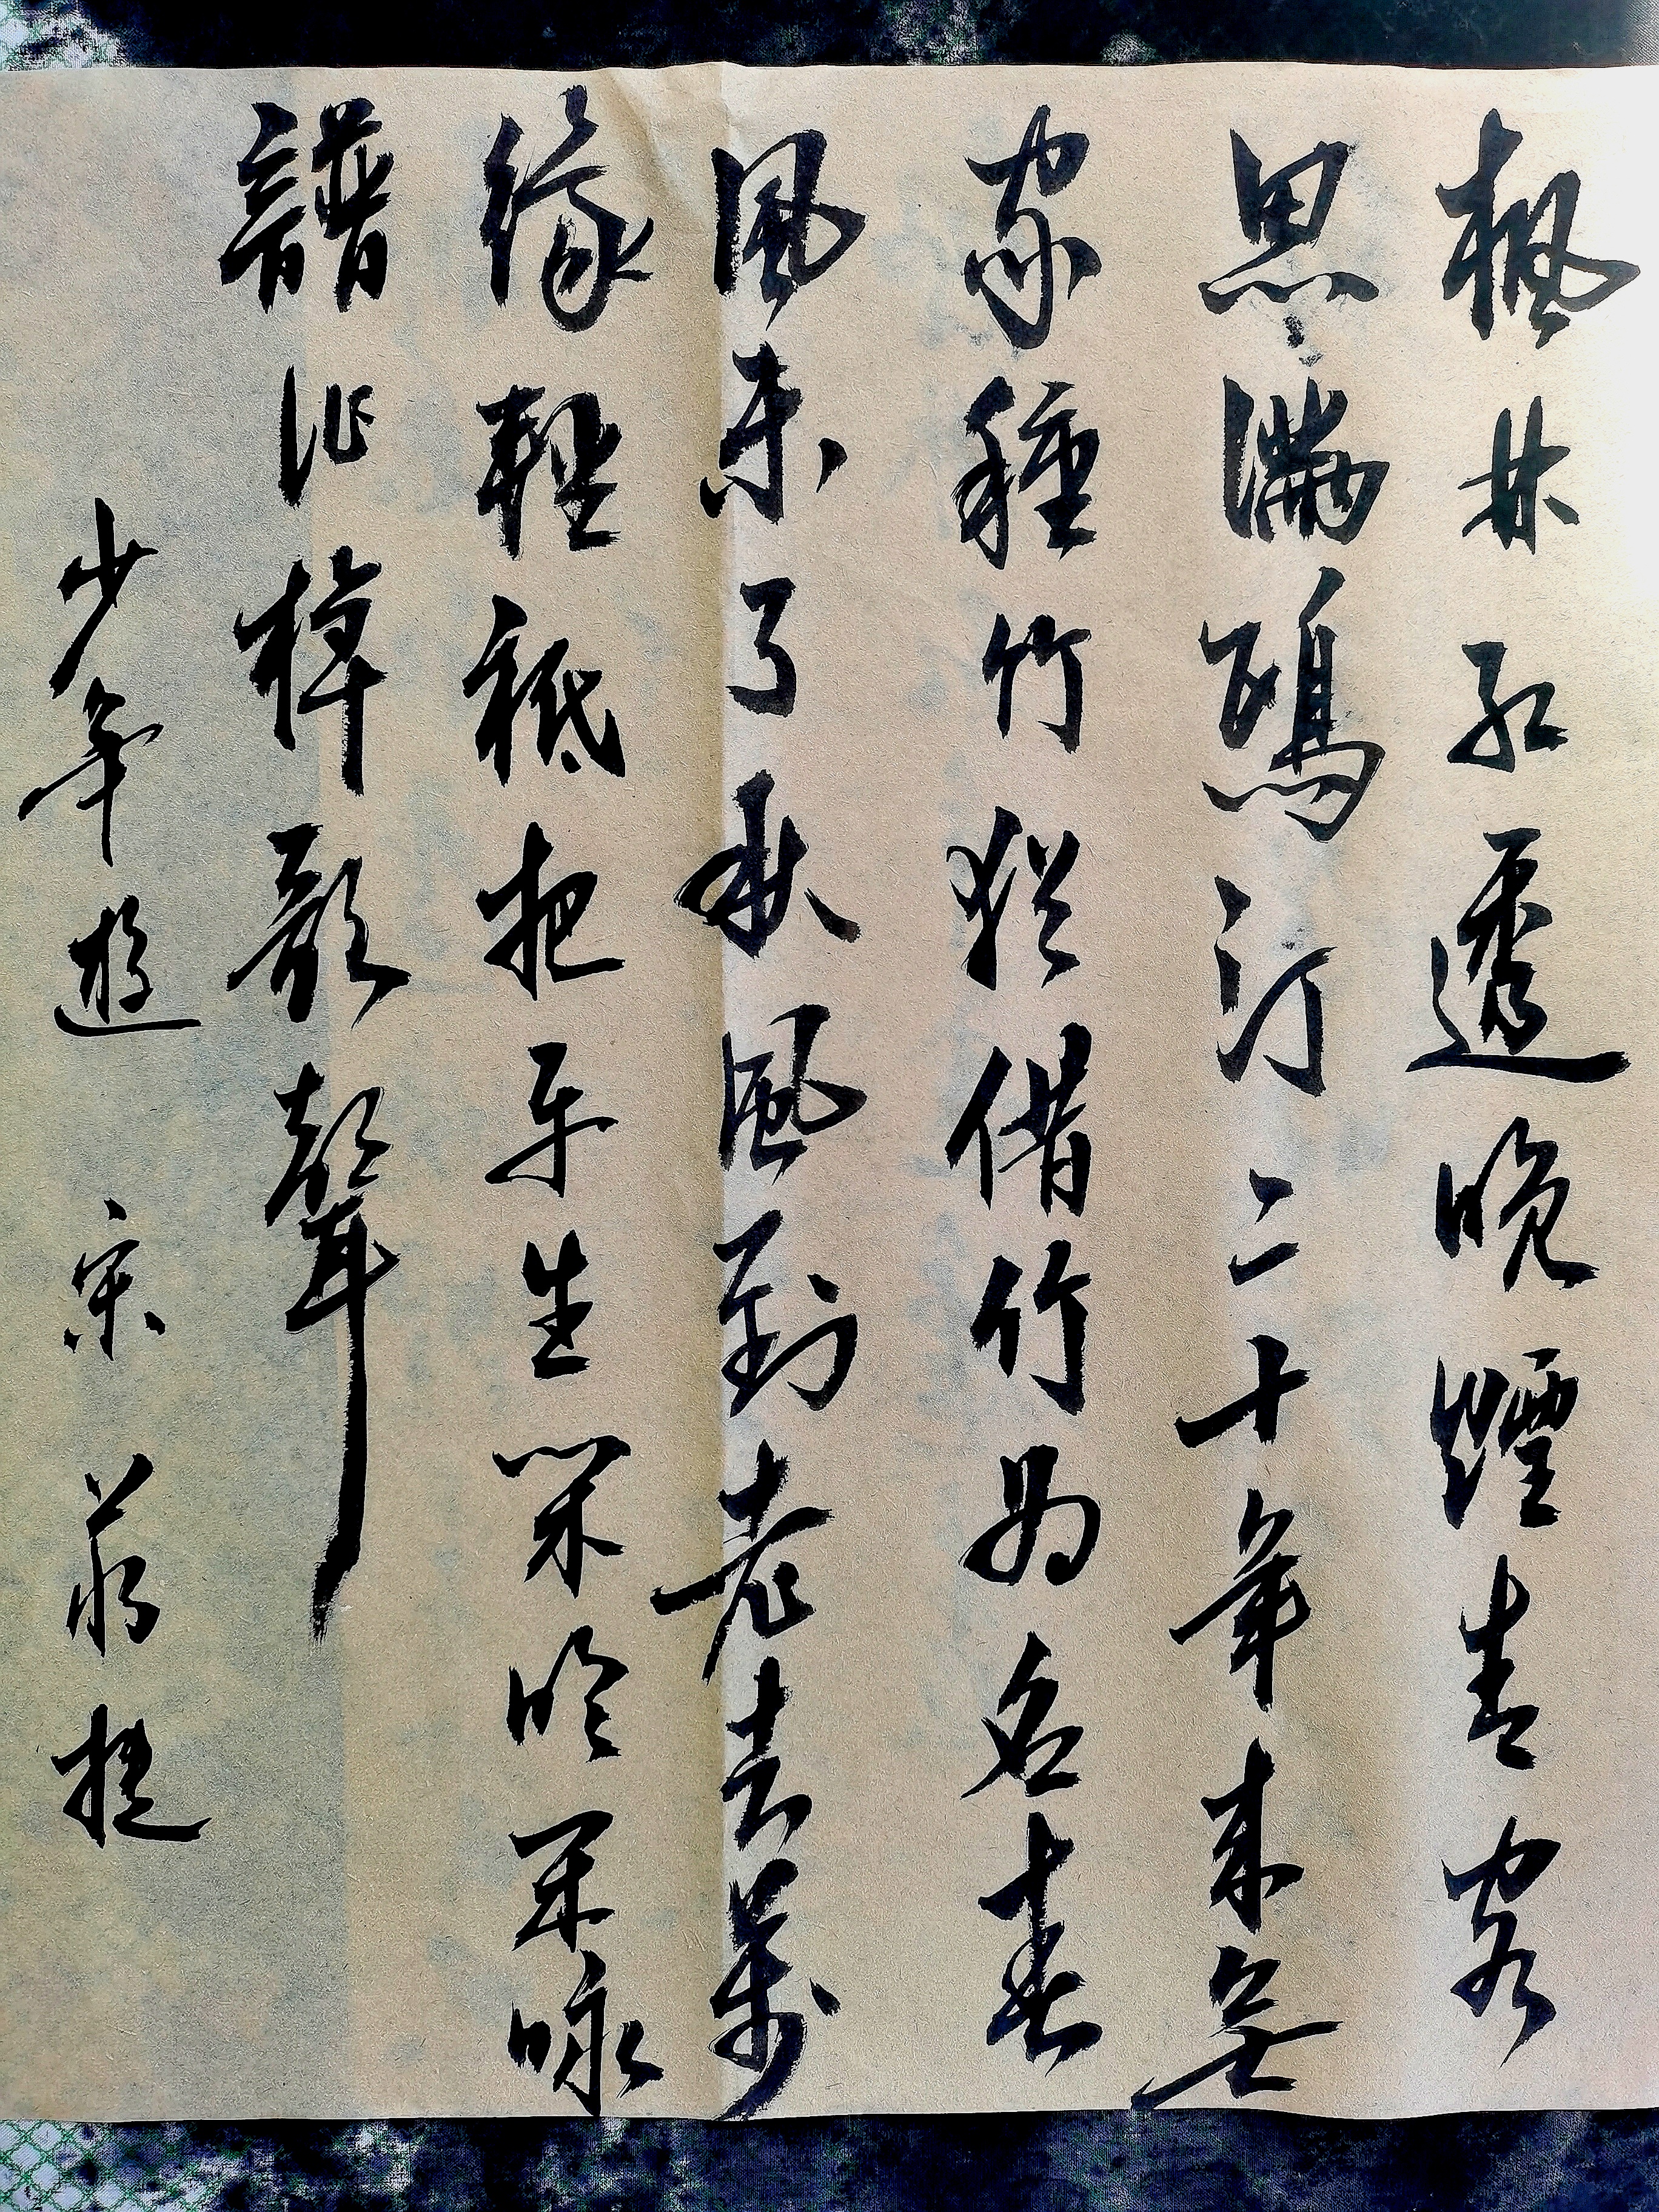 楓林紅透晚煙青客
思滿鷗汀二十年來無
家種竹猶借竹為名春
風未了秋風到老去萬
緣輕秪把平生閑吟閑咏
譜作棹歌聲
少年遊 宋 蔣捷